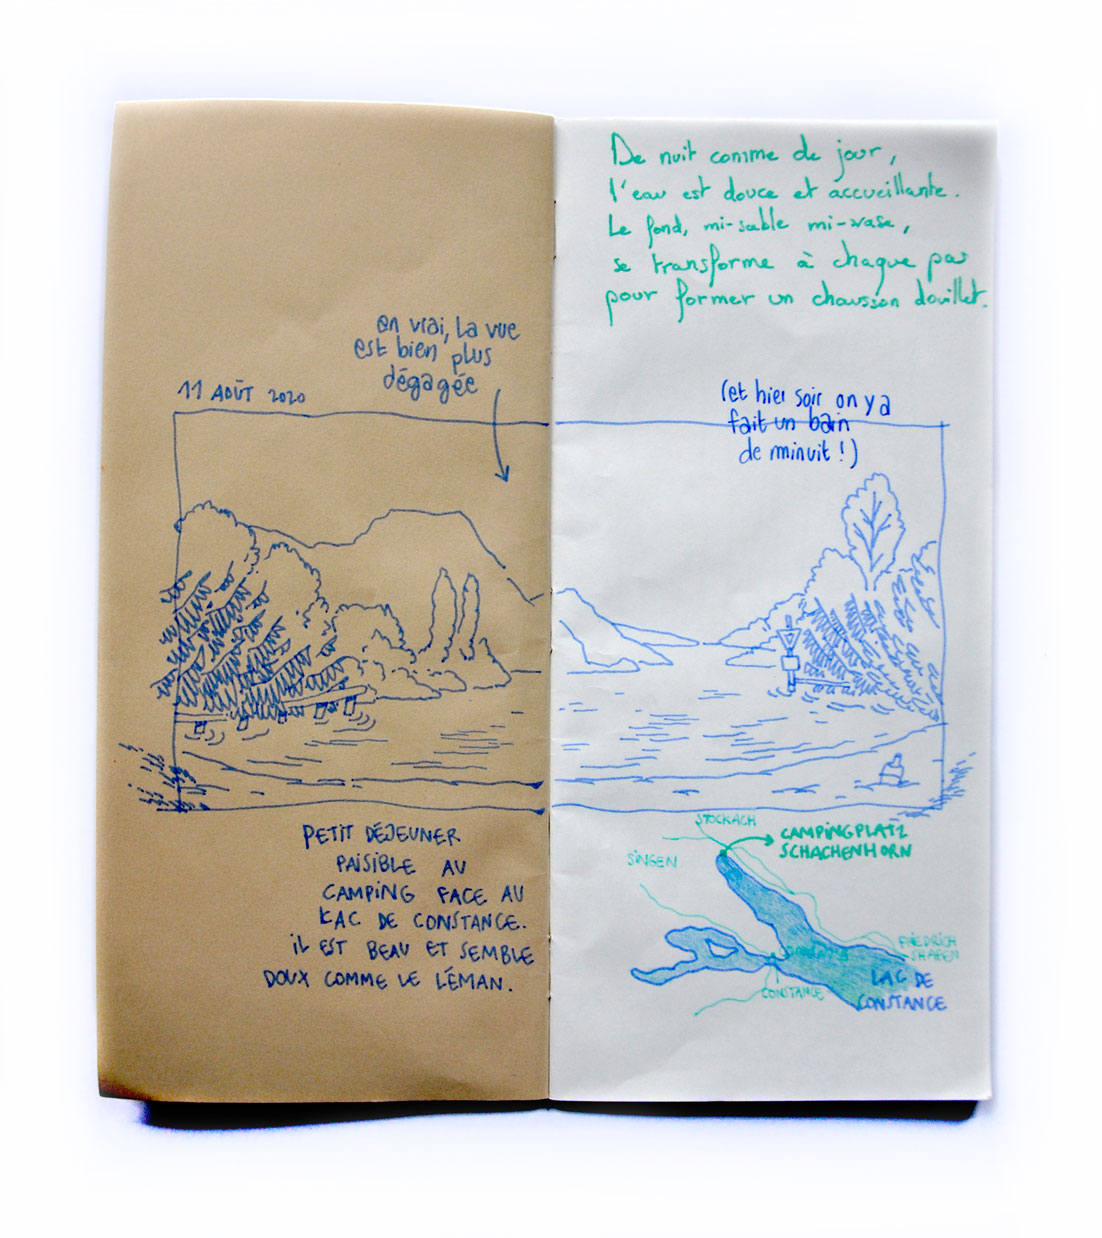 en vrai, la vue
est bien plus
dégagée
11 AOÛT 2020
PETIT DÉJEUNER
PAISIBLE AU
CAMPING FACE AU
LAC DE CONSTANCE.
IL EST BEAU ET SEMBLE
DOUX COMME LE LÉMAN.
De nuit comme de jour,
l'eau est douce et accueillante.
Le fond, mi-sable mi-vase,
se transforme à chaque pas
pour former un chausson douillet.
(et hier soir on y a
fait un bain
de minuit !)
STOCKACH
CAMPINGPLATZ
SCHACHENHORN
SINGEN
FRIEDRICH
SHAFEN
CONSTANCE
LAC DE
CONSTANCE